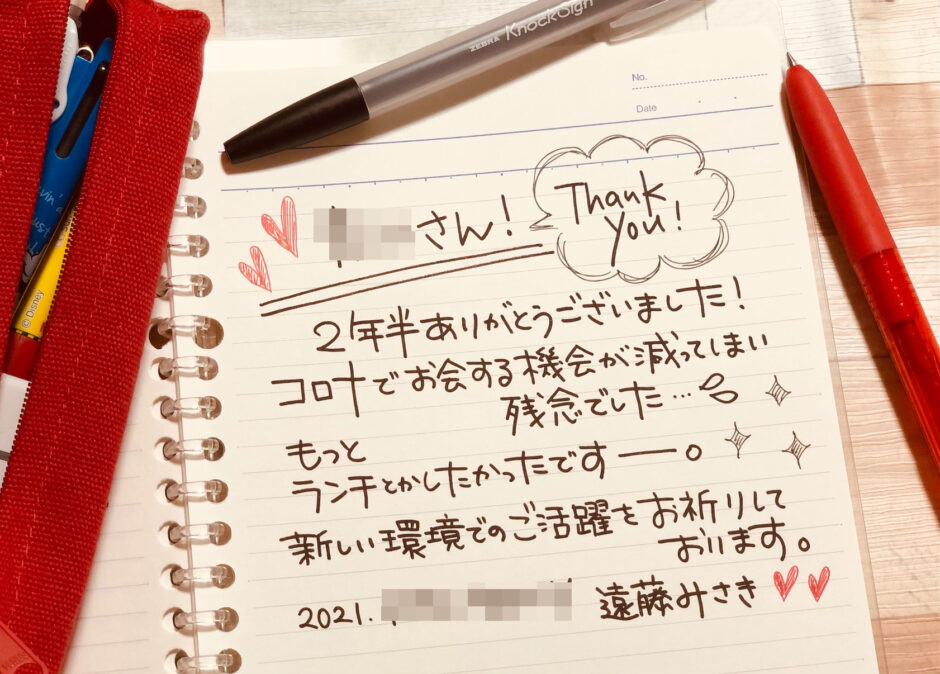 ZEBRA KnockSign
No.
Date
さん!
Thank
you!
2年半ありがとうございました!
コロナでお会する機会が減ってしまい
残念でした…
もっと
ランチとかしたかったですー。
新しい環境でのご活躍をお祈りして
おります。
2021.
遠藤みさき
© Disney